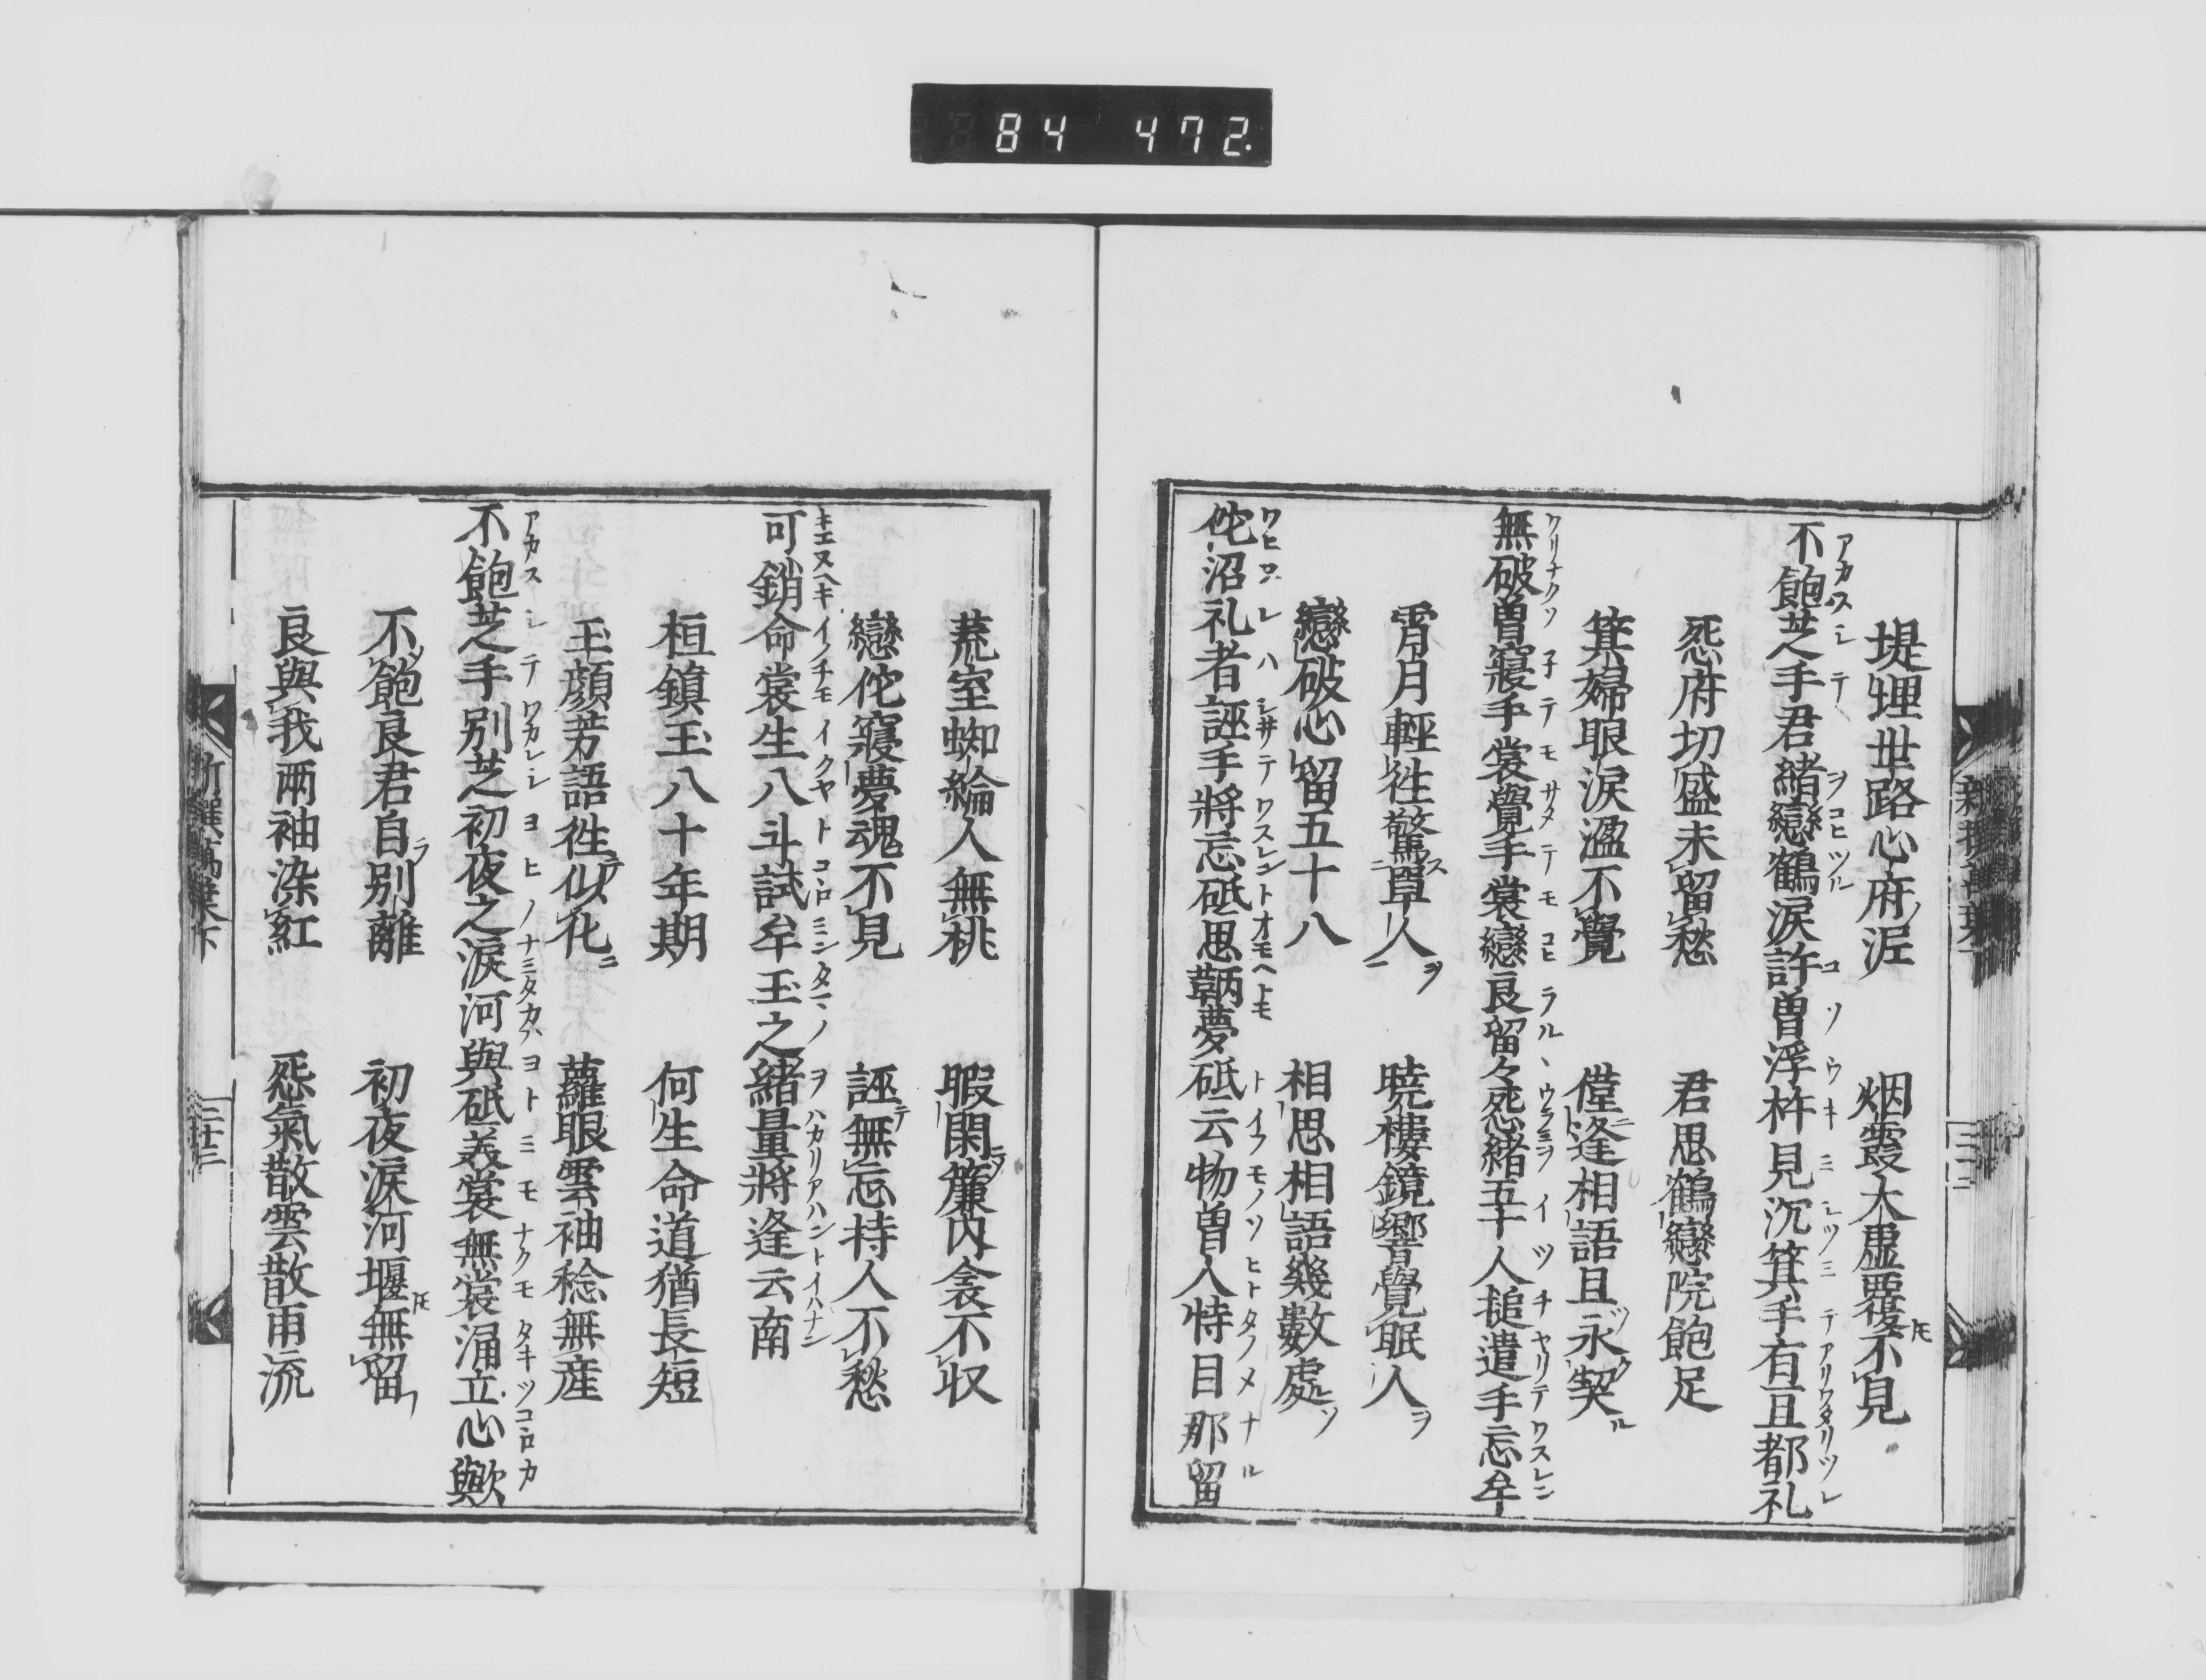 84 472.
堤堙世路心府泥　烟霞大虚覆不見
不飽芝手君緒戀鶴淚許曽浮杵見沉箕手有亘都礼
怨府切盛未留愁　君思鶴戀院飽足
箕婦眼淚溢不覺　僅逢相語且永契
無破曽寢手裳覺手裳戀良留々怨緒五十人槌遣手忘牟
霄月輕往驚單人　曉樓鏡響覺眠人
戀破心留五十八　相思相語幾數處
侘沼礼者誣手將忘砥思鞆夢砥云物曽人恃目那留
荒室蜘綸人無桃　暇閑簾内衾不収
戀侘寢夢魂不見　誣無忘持人不愁
可銷命裳生八斗試牟玉之緒量將逢云南
桓鎮玉八十年期　何生命道猶長短
玉顔芳語徃似化　蘿眼雲袖稔無産
不飽芝手別芝初夜之淚河與砥義裳無裳涌立心歟
不飽良君自別離　初夜淚河堰無留
良與我兩袖染紅　怨氣散雲散雨流
新撰萬葉下
二十三